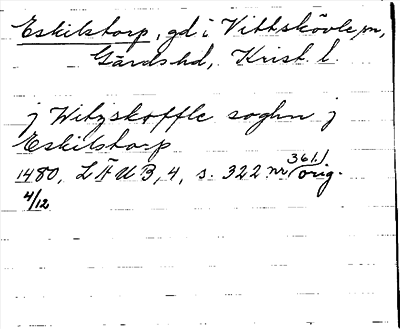 Eskilstorp, gd i Vittskövle sn,
Gärds hd, Krist. l.
j Witzskoffle soghn j
Eskilstorp
1480, LÄUB, 4, s. 322 nr 361/orig.
4/12